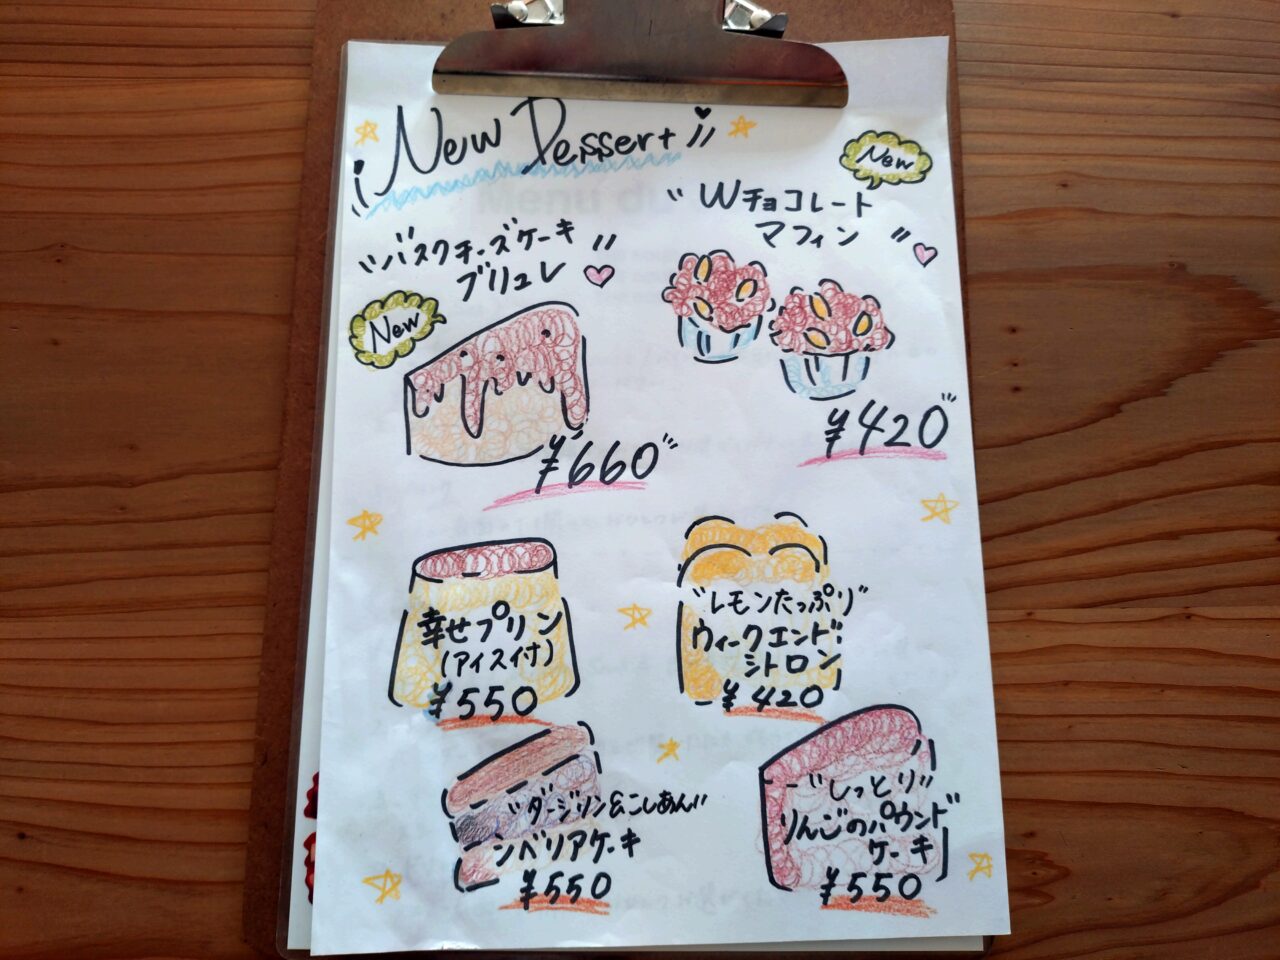 New Dessert
New
"Wチョコレート
マフィン"
"バスクチーズケーキ
ブリュレ"
New
¥420
¥660
幸せプリン
(アイス付)
¥550
"レモンたっぷり"
ウィークエンド・
シトロン
¥420
"ダージリン&こしあん"
シベリアケーキ
¥550
"しっとり"
りんごのパウンド
ケーキ
¥550